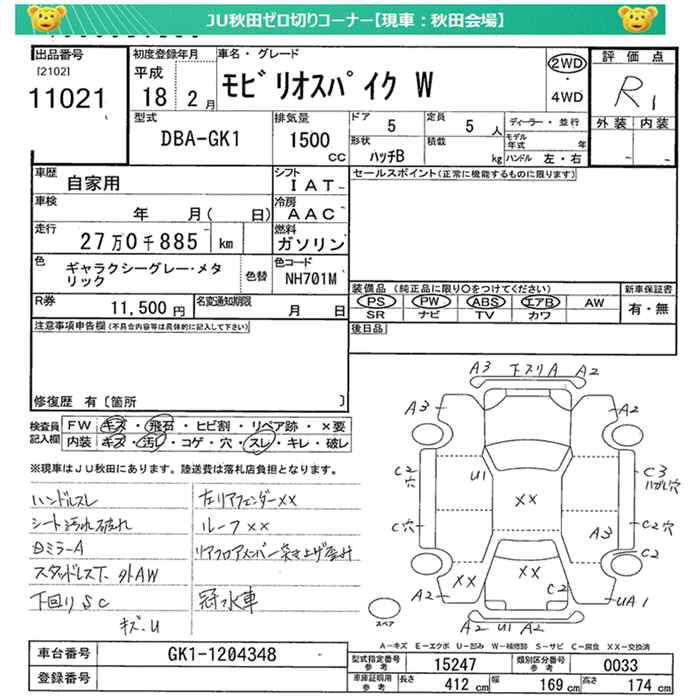 JU秋田ゼロ切りコーナー【現車：秋田会場】
出品番号
[2102]
11021
初度登録年月
平成
18 2月
車名・グレード
モビリオスパイク W
2WD
・
4WD
評価点
R1
外装 内装
- -
型式
DBA-GK1
排気量
1500
CC
ドア
5
定員
5 人
形状
ハッチB
積載
kg
ディーラー・並行
モデル年式 年
ハンドル 左・右
車歴
自家用
シフト
IAT
車検
年 月( 日)
冷房
AAC
走行
27万0千885 km
燃料
ガソリン
色
ギャラクシーグレー・メタリック
色替
色コード
NH701M
R券
11,500 円
名変通知期限
月 日
セールスポイント(正常に機能するものに限ります)
装備品 (純正品に限り○をつけてください)
PS PW ABS エアB AW
SR ナビ TV カワ
新車保証書
有・無
後日品
注意事項申告欄(不具合内容等は具体的に記入して下さい)
修復歴 有〔箇所 〕
検査員記入欄
FW キズ・飛石・ヒビ割・リペア跡・×要
内装 キズ・汚れ・コゲ・穴・スレ・キレ・破レ
※現車はJU秋田にあります。陸送費は落札店負担となります。
ハンドルスレ
シート汚れ破れ
ミラーA
スタッドレス
外AW
下回りSC
キズ・U
左リアフェンダーXX
ルーフXX
リアフロアメンバー突き上げ歪み
冠水車
A3 下スリA A2
A3
A2
U1
XX
C2
穴
C3
C穴
C2穴
A3
C2
C2
XX
XX
C2
A2
UA1
A2 U1 A2
スペア
A-キズ E-エクボ U-凹み W-補修跡 S-サビ C-腐食 XX-交換済
車台番号
GK1-1204348
登録番号
型式指定番号
参考
15247
類別区分番号
参考
0033
車庫証明用
参考
長さ 412 cm
幅 169 cm
高さ 174 cm